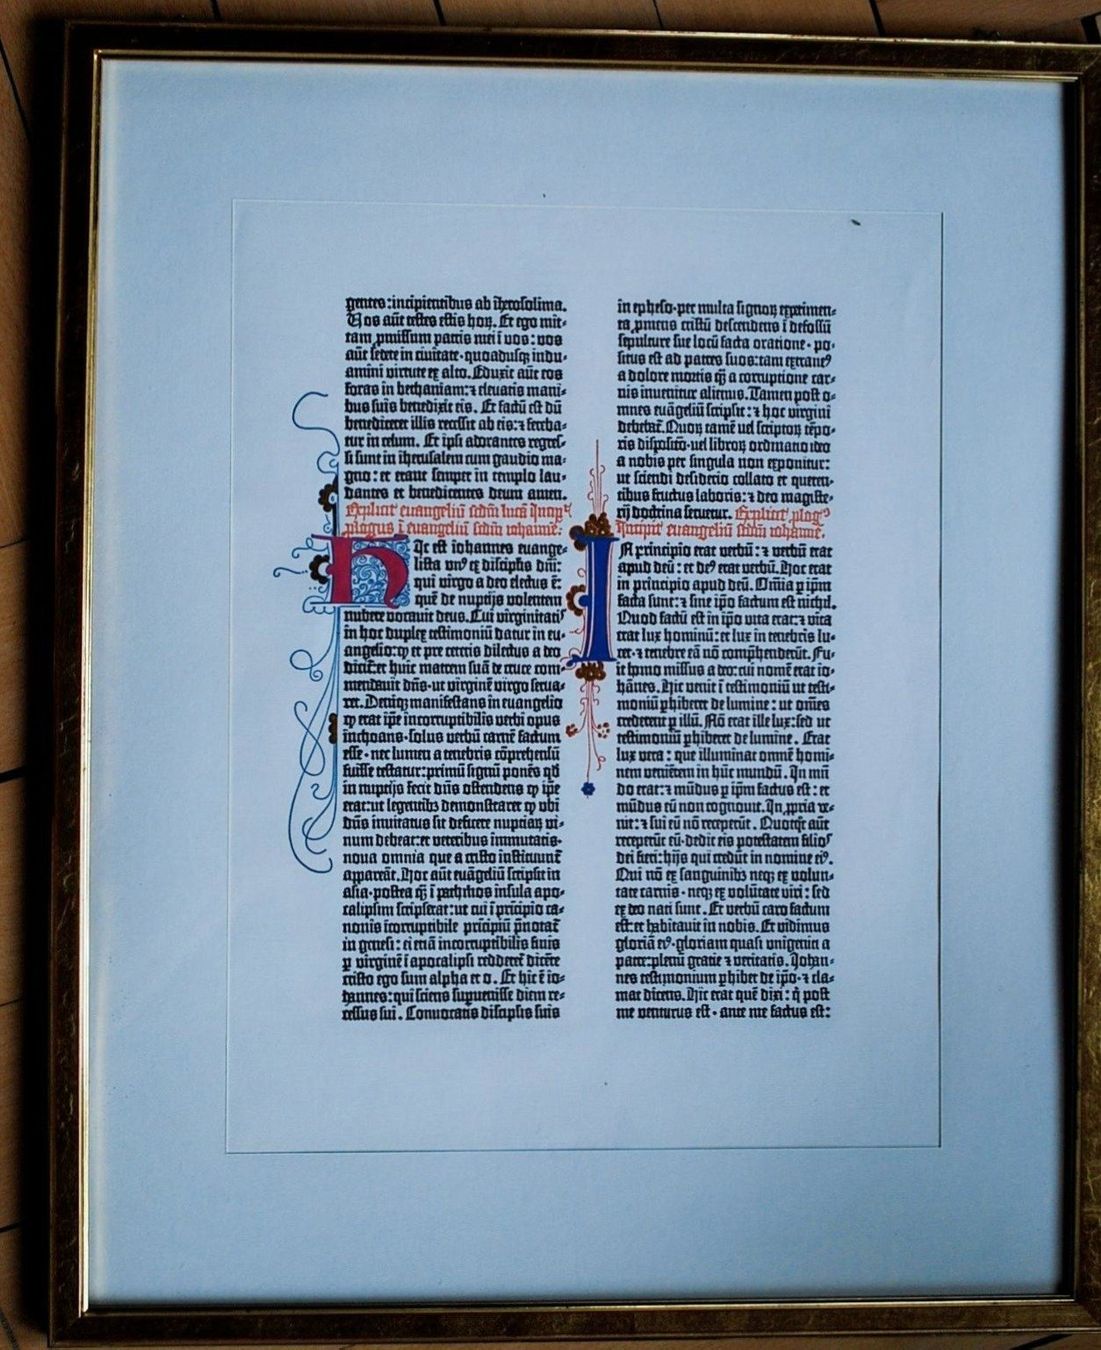 gentes:incipientibus ab iherosolima.
Vos aūt testes estis hoꝝ. Et ego mit-
tam ꝓmissum patris mei ī vos: vos
aūt sedete in civitate·quoadusqꝫ indu-
amini virtute ex alto. Eduxit aūt eos
foras in bethaniam:⁊ elevatis mani-
bus suis benedixit eis. Et factū est dū
benediceret illis recessit ab eis:⁊ fereba-
tur in celum. Et ipsi adorantes regres-
si sunt in iherusalem cum gaudio ma-
gno: et erant semper in templo lau-
dantes et benedicentes deum amen.
Explicit evangeliū scdm lucā Incip
plogus ī evangeliū scdm iohannē:
Hic est iohannes euange-
lista vnꝰ ex discipłis dn̄i:
qui virgo a deo electus ē:
quē de nuptijs volentem
nubere vocauit deus. Cui virginitatis
in hoc duplex testimoniū datur in eu-
angelio:ꝙ et pre ceteris dilectus a deo
dicit̄:et huic matrem suā de cruce com-
mendauit dn̄s·ut virginē virgo serua-
ret. Deniqꝫ manifestans in euangelio
ꝙ erat ip̄e incorruptibilis verbi opus
inchoans·solus verbū carnē factum
esse·nec lumen a tenebris cōprehensū
fuisse testatur:primū signū ponēs qd̄
in nuptijs fecit dn̄s ostendens ꝙ ip̄e
erat:ut legentibꝫ demonstraret ꝙ vbi
dn̄s inuitatus sit deficere nuptiaꝝ vi-
num debeat:et veteribus immutatis·
noua omnia que a cristo instituunt̄
appareāt. Hoc aūt euāgeliū scripsit in
asia·postea ꝙ̄ ī pathmos insula apo-
calipsim scripserat:ut cui ī prīcipio ca-
nonis īcorruptibile prīcipiū p̄notat̄
in genesi: ei etiā incorruptibilis finis
ꝑ virginē ī apocalipsi redderet̄ dicēte
cristo ego sum alpha et o. Et hic ē io-
hannes:qui sciens supuenisse diem re-
cessus sui. Conuocatis discipłis suis
in epheso·per multa signoꝝ experimen-
ta ꝓmens cristū descendens ī defossū
sepulture sue locū facta oratione·po-
situs est ad patres suos:tam extraneꝰ
a dolore mortis ꝙ̄ a corruptione car-
nis inuenitur alienus. Tamen post o-
mnes euāgeliū scripsit:⁊ hoc virgini
debebat̄. Quoꝝ tamē uel scriptoꝝ tēpo-
ris dispositō·uel libroꝝ ordinatio ideo
a nobis per singula non exponitur:
ut sciendi desiderio collato et queren-
tibus fructus laboris:⁊ deo magiste-
rij doctrina seruetur. Explicit plogꝰ
Incipit evangeliū scdm iohannē.
IN principio erat verbū:⁊ verbū erat
apud deū: et deꝰ erat verbū. Hoc erat
in principio apud deū. Om̄ia ꝑ ip̄m
facta sunt:⁊ sine ip̄o factum est nichil.
Quod factū est in ip̄o vita erat:⁊ vita
erat lux hominū:et lux in tenebris lu-
cet·⁊ tenebre eā nō comp̄henderūt. Fu-
it homo missus a deo:cui nomē erat io-
hānes. Hic venit ī testimoniū ut testi-
moniū ꝑhiberet de lumine: ut om̄es
crederent ꝑ illū. Nō erat ille lux:sed ut
testimoniū ꝑhiberet de lumine. Erat
lux vera: que illuminat omnē homi-
nem veniētem in hūc mundū. In mū-
do erat:⁊ mūdus ꝑ ip̄m factus est: et
mūdus eū non cognouit. In ꝓpria ve-
nit:⁊ sui eū nō receperūt. Quotqt̄ aūt
receperūt eū·dedit eis potestatem filios
dei fieri:hijs qui credūt in nomine eiꝰ.
Qui nō ex sanguinibꝫ neqꝫ ex volun-
tate carnis·neqꝫ ex volūtate viri: sed
ex deo nati sunt. Et verbū caro factum
est:et habitauit in nobis. Et vidimus
gloriā eiꝰ·gloriam quasi vnigeniti a
patre:plenū gratie ⁊ veritatis. Johan-
nes testimonium ꝑhibet de ip̄o·⁊ cla-
mat dicens. Hic erat quē dixi: q̄ post
me venturus est·ante me factus est: